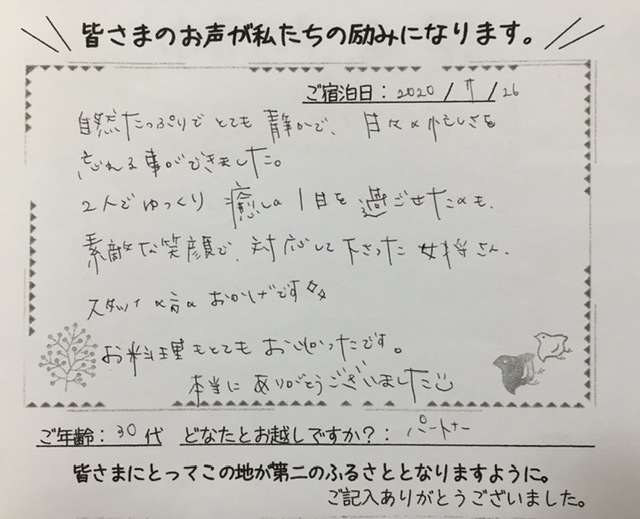 皆さまのお声が私たちの励みになります。
ご宿泊日：2020 / 7 / 26
自然たっぷりでとても静かで、日々の忙しさを
忘れる事ができました。
2人でゆっくり癒しの1日を過ごせたのも、
素敵な笑顔で、対応して下さった女将さん、
スタッフの方のおかげです
お料理もとてもおいしかったです。
本当にありがとうございました
ご年齢：30代 どなたとお越しですか？：パートナー
皆さまにとってこの地が第二のふるさととなりますように。
ご記入ありがとうございました。